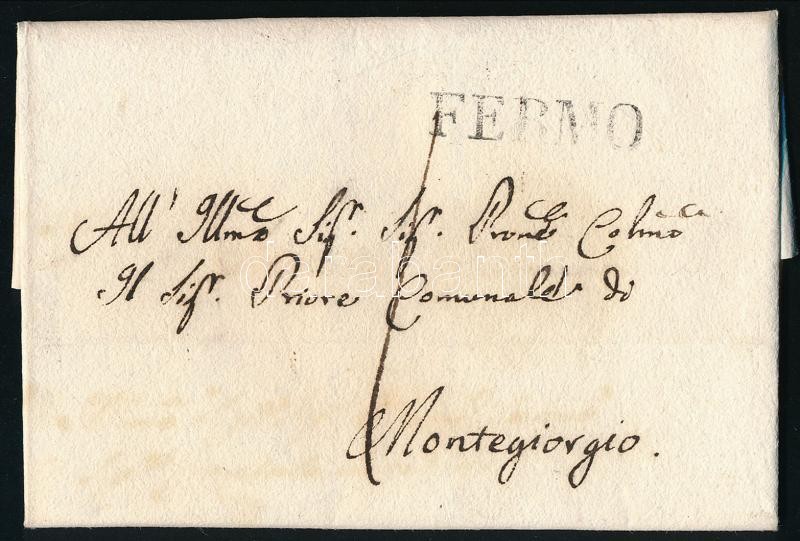 FERMO
All' Illmo Sigr. Sigr. Prone Colmo
Il Sigr. Priore Comunale di
Montegiorgio.
darabanth